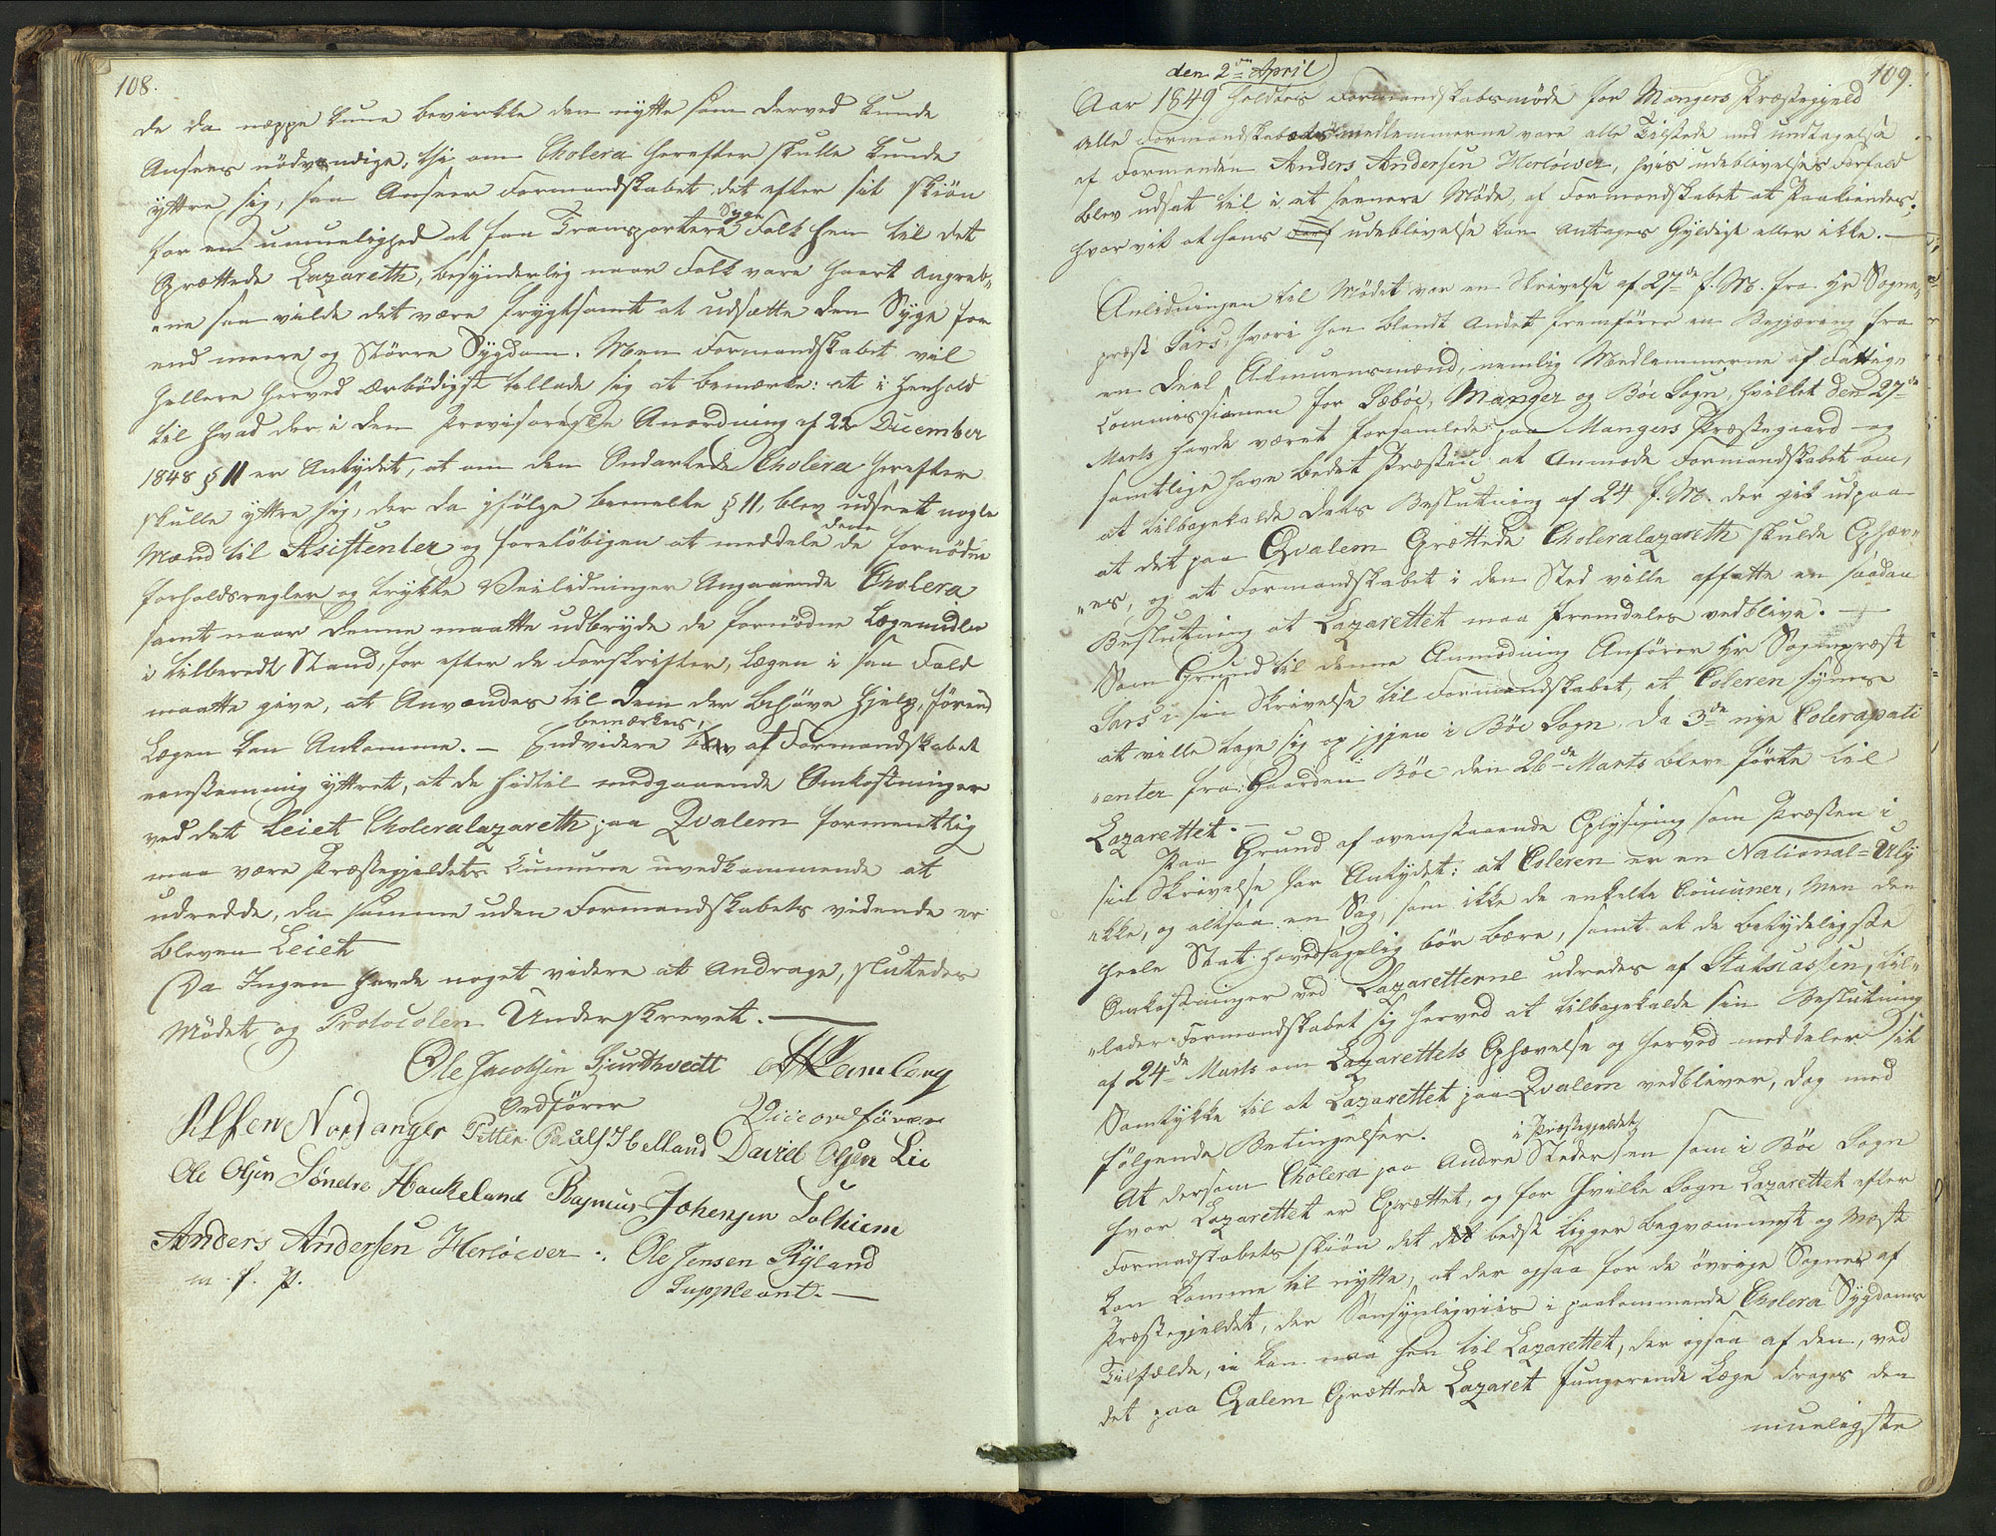 108.
de da neppe kune bevirkke den nytte som derved kunde
Ansees nödvendige, thi om Cholera herefter skulle kunde
yttre sig, saa Anseer Formandskabet det efter sit skiön
for en umuelighed at faa Transportere Syge Folk hen til det
Oprættede Lazareth, besynderlig naar Folk vare haart Angreb-
ene saa vilde det være frygtsomt at udsætte den Syge for
end meere og Större Sygdom. Men Formandskabet vil
hellere herved ærbödigst tillade sig at bemærke: at i Henhold
til hvad der i den Provisoriske Anordning af 22 December
1848 § 11 er Antydet, at om den Ondartede Cholera herefter
skulle yttre sig, der da ifölge bemelte § 11, blev udseet nogle
Mænd til Asistenter og forelöbigen at meddele dem de fornödne
forholdsregler og trykte Veiledninger Angaaende Cholera
samt naar denne maatte udbryde de fornödne Lægemidler
i tilberedt Stand, for efter de Forskrifter, Lægen i saa Fald
maatte give, at Anvændes til dem der behöve hjelp, förend
Lægen kan Ankomme. — Endvidere bemærkes, blev af Formandskabet
eenstemmig yttret, at de hidtil medgaaende Omkostninger
ved det Leiet Choleralazareth paa Qvalem formentlig
maa være Præstegjeldets Cumune uvedkommende at
udredde, da samme uden Formandskabets vidende er
bleven Leiet
Da Ingen havde noget videre at Andrage, sluttedes
Mödet og Protocolen Underskrevet. —
Ole Jacobsen Hjurthvedt A Ramberg
Ordförer Viceordförer
N Olsen Nordanger Petter Paulsen Helland David Olsen Lie
Ole Olsen Söndre Haukeland Rasmus Johensen Solhiem
Anders Andersen Herlöever. Ole Jensen Ryland
m. f. P. Suppleant. —
109.
den 2den April
Aar 1849 holdtes Formandskabsmöde for Mangers Præstegjeld
Alle Formandskabsmedlemmerne vare alle Tilstede med undtagelse
af Formanden Anders Andersen Herlöever, hvis udeblivelses Forfald
blev udsat til i et senere Möde, af Formandskabet at Paakiendes,
hvorvit at hans Forf udeblivelse kan Antages Gyldigt eller ikke. —
Anledningen til Mödet var en Skrivelse af 27de f. M. fra Hr Sogne-
præst Sars, hvori han blandt Andet fremförer en Begjæring fra
en Deel Almuensmænd, nemlig Medlemmerne af Fattig-
commissionen for Sæböe, Manger og Böe Sogn, hvilket den 27de
Marts havde været forsamlede paa Mangers Præstegaard og
samtlige have bedet Præsten at Anmode Formandskabet om,
at tilbagekalde dets Beslutning af 24 f. M. der gik udpaa
at det paa Qvalem Oprættede Choleralazareth skulde Ophæv-
es, og at Formandskabet i den Sted ville affatte en saadan
Beslutning at Lazarettet maa fremdeles vedblive. —
Som Grund til denne Anmodning Anförer Hr Sognepræst
Sars i sin Skrivelse til Formandskabet, at Coleren synes
at ville tage sig op igjen i Böe Sogn, da 3de nye Colerapati
enter fra Gaarden Böe den 26de Marts bleve förte til
Lazarettet. —
Paa Grund af ovenstaaende Oplysning som Præsten i
sin Skrivelse har Antydet: at Coleren er en National=Uly
ikke, og altsaa en Sag, som ikke de enkelte Comuner, men den
heele Stat hovedsagelig bör bære, samt at de betydeligste
Omkostninger ved Lazaretterne udredes af Statscassen, til-
lader Formandskabet sig herved at tilbagekalde sin Beslutning
af 24de Marts om Lazarettets Ophævelse og herved meddeler sit
Samtykke til at Lazarettet paa Qvalem vedbliver, dog med
fölgende Betingelser.
At dersom Cholera paa Andre Steder i Præstegjeldet, en som i Böe Sogn
hvor Lazarettet er Oprættet, og for hvilke Sogn Lazarettet efter
Formadskabets skiön det det bedst ligger begvæmmest og Mest
kan komme til nytte, at der ogsaa for de övrige Sogner af
Præstegjeldet, der Sansynligviis i paakommende Cholera Sygdoms
Tilfælde, ei kan naa hen til Lazarettet, der ogsaa af den, ved
det paa Qvalem Oprættede Lazaret fungerende Læge drages den
mueligste